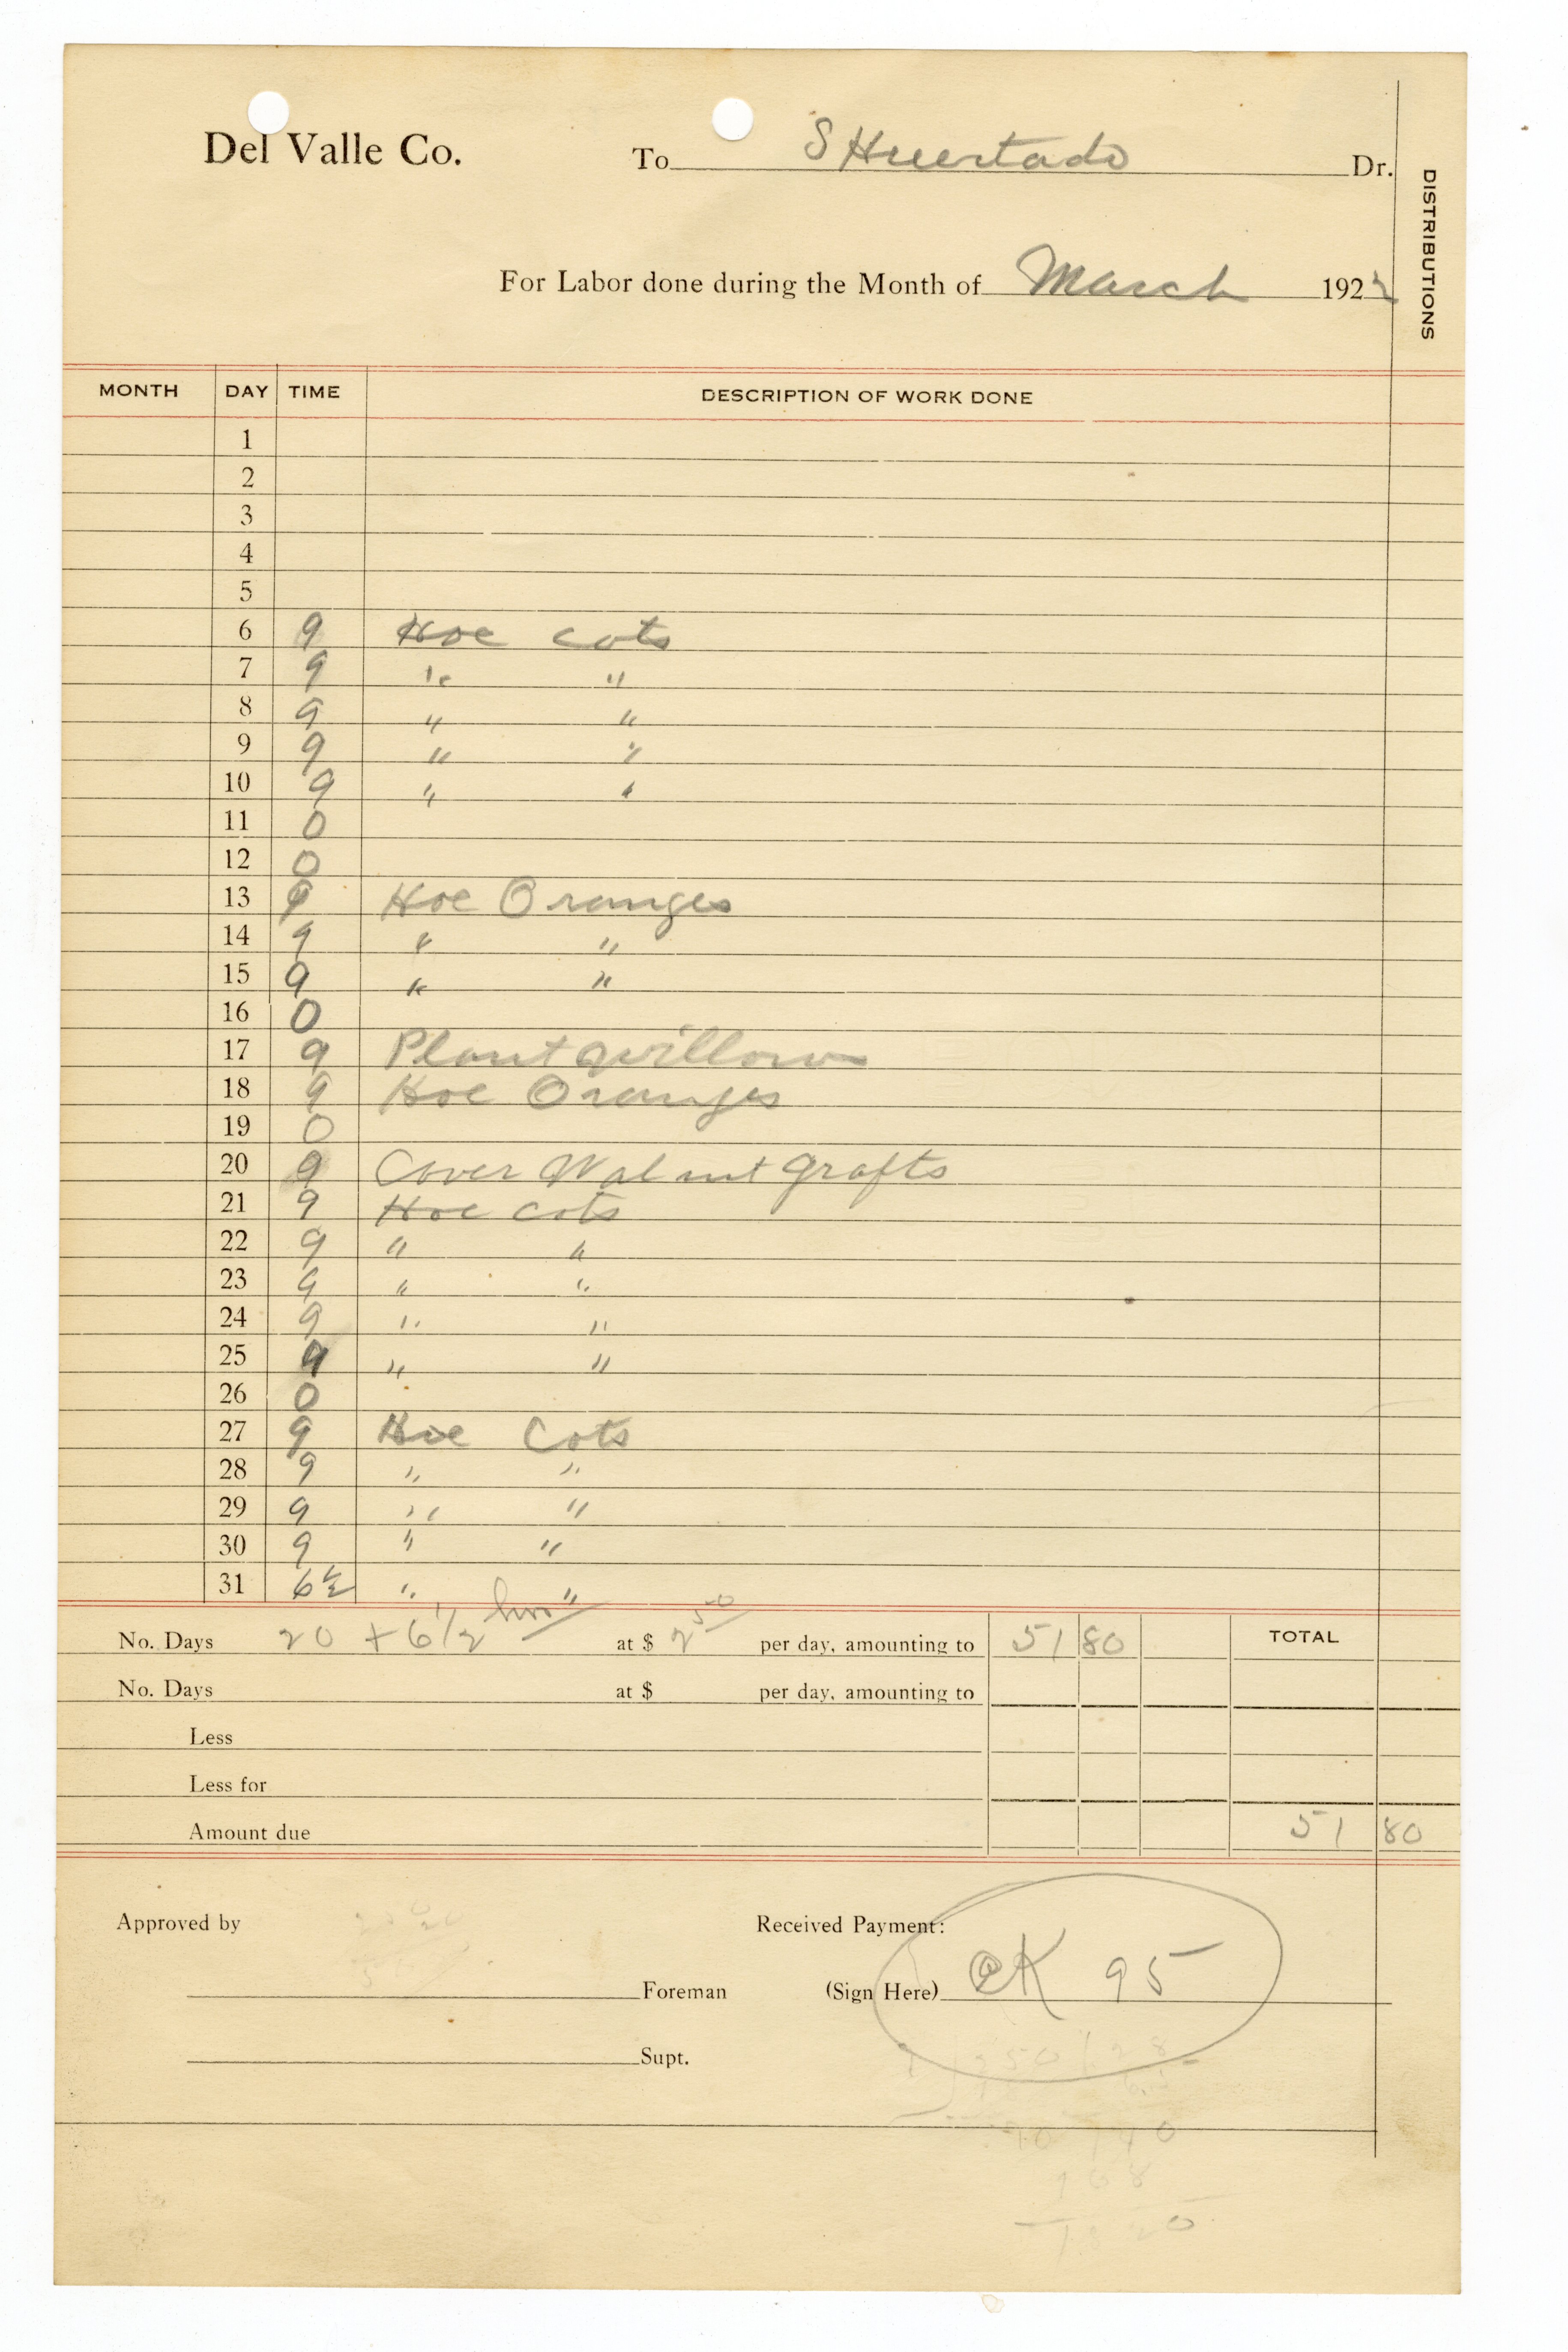 Del Valle Co. To S Huertado Dr.
DISTRIBUTIONS
For Labor done during the Month of March 1922
MONTH DAY TIME DESCRIPTION OF WORK DONE
1
2
3
4
5
6 9 Hoe cots
7 9 " "
8 9 " "
9 9 " "
10 9 " "
11 0
12 0
13 9 Hoe Oranges
14 9 " "
15 9 " "
16 0
17 9 Plant willows
18 9 Hoe Oranges
19 0
20 9 Cover Walnut grafts
21 9 Hoe cots
22 9 " "
23 9 " "
24 9 " "
25 9 " "
26 0
27 9 Hoe Cots
28 9 " "
29 9 " "
30 9 " "
31 6½ " "
No. Days 20 + 6 1/2 hrs at $ 2 50 per day, amounting to 51 80 TOTAL
No. Days at $ per day, amounting to
Less
Less for
Amount due 51 80
Approved by Received Payment:
Foreman (Sign Here) CK 95
Supt.